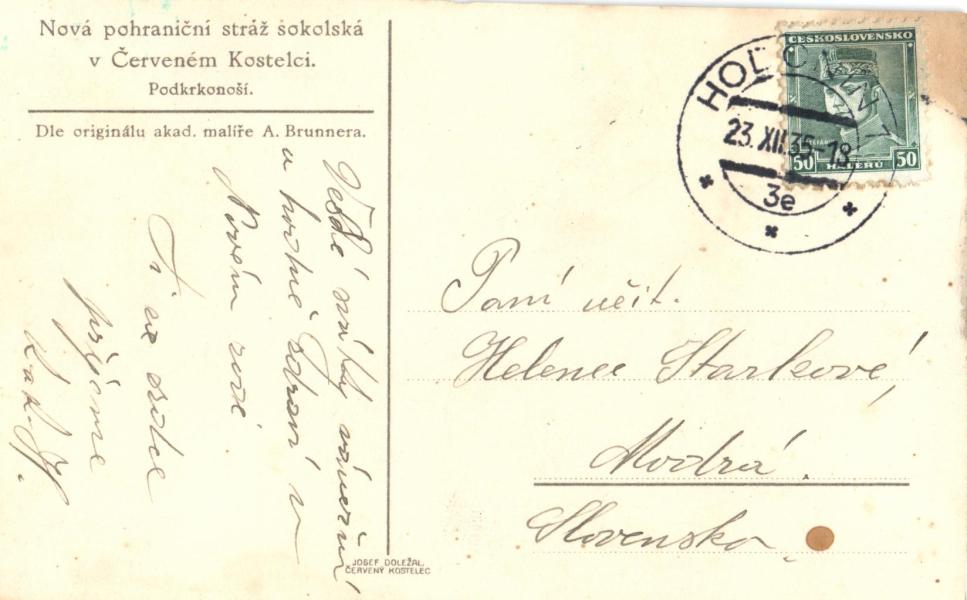 Nová pohraniční stráž sokolská
v Červeném Kostelci.
Podkrkonoší.
Dle originálu akad. malíře A. Brunnera.
Veselé svátky vánoční
a hodně zdraví v
Novém roce
Ti ze srdce
přejeme
JOSEF DOLEŽAL,
ČERVENÝ KOSTELEC
ČESKOSLOVENSKO
50 HALÉŘŮ 50
23.XII.35-18
3e
Paní učit.
Helence Starkové,
Modrá.
Slovensko.